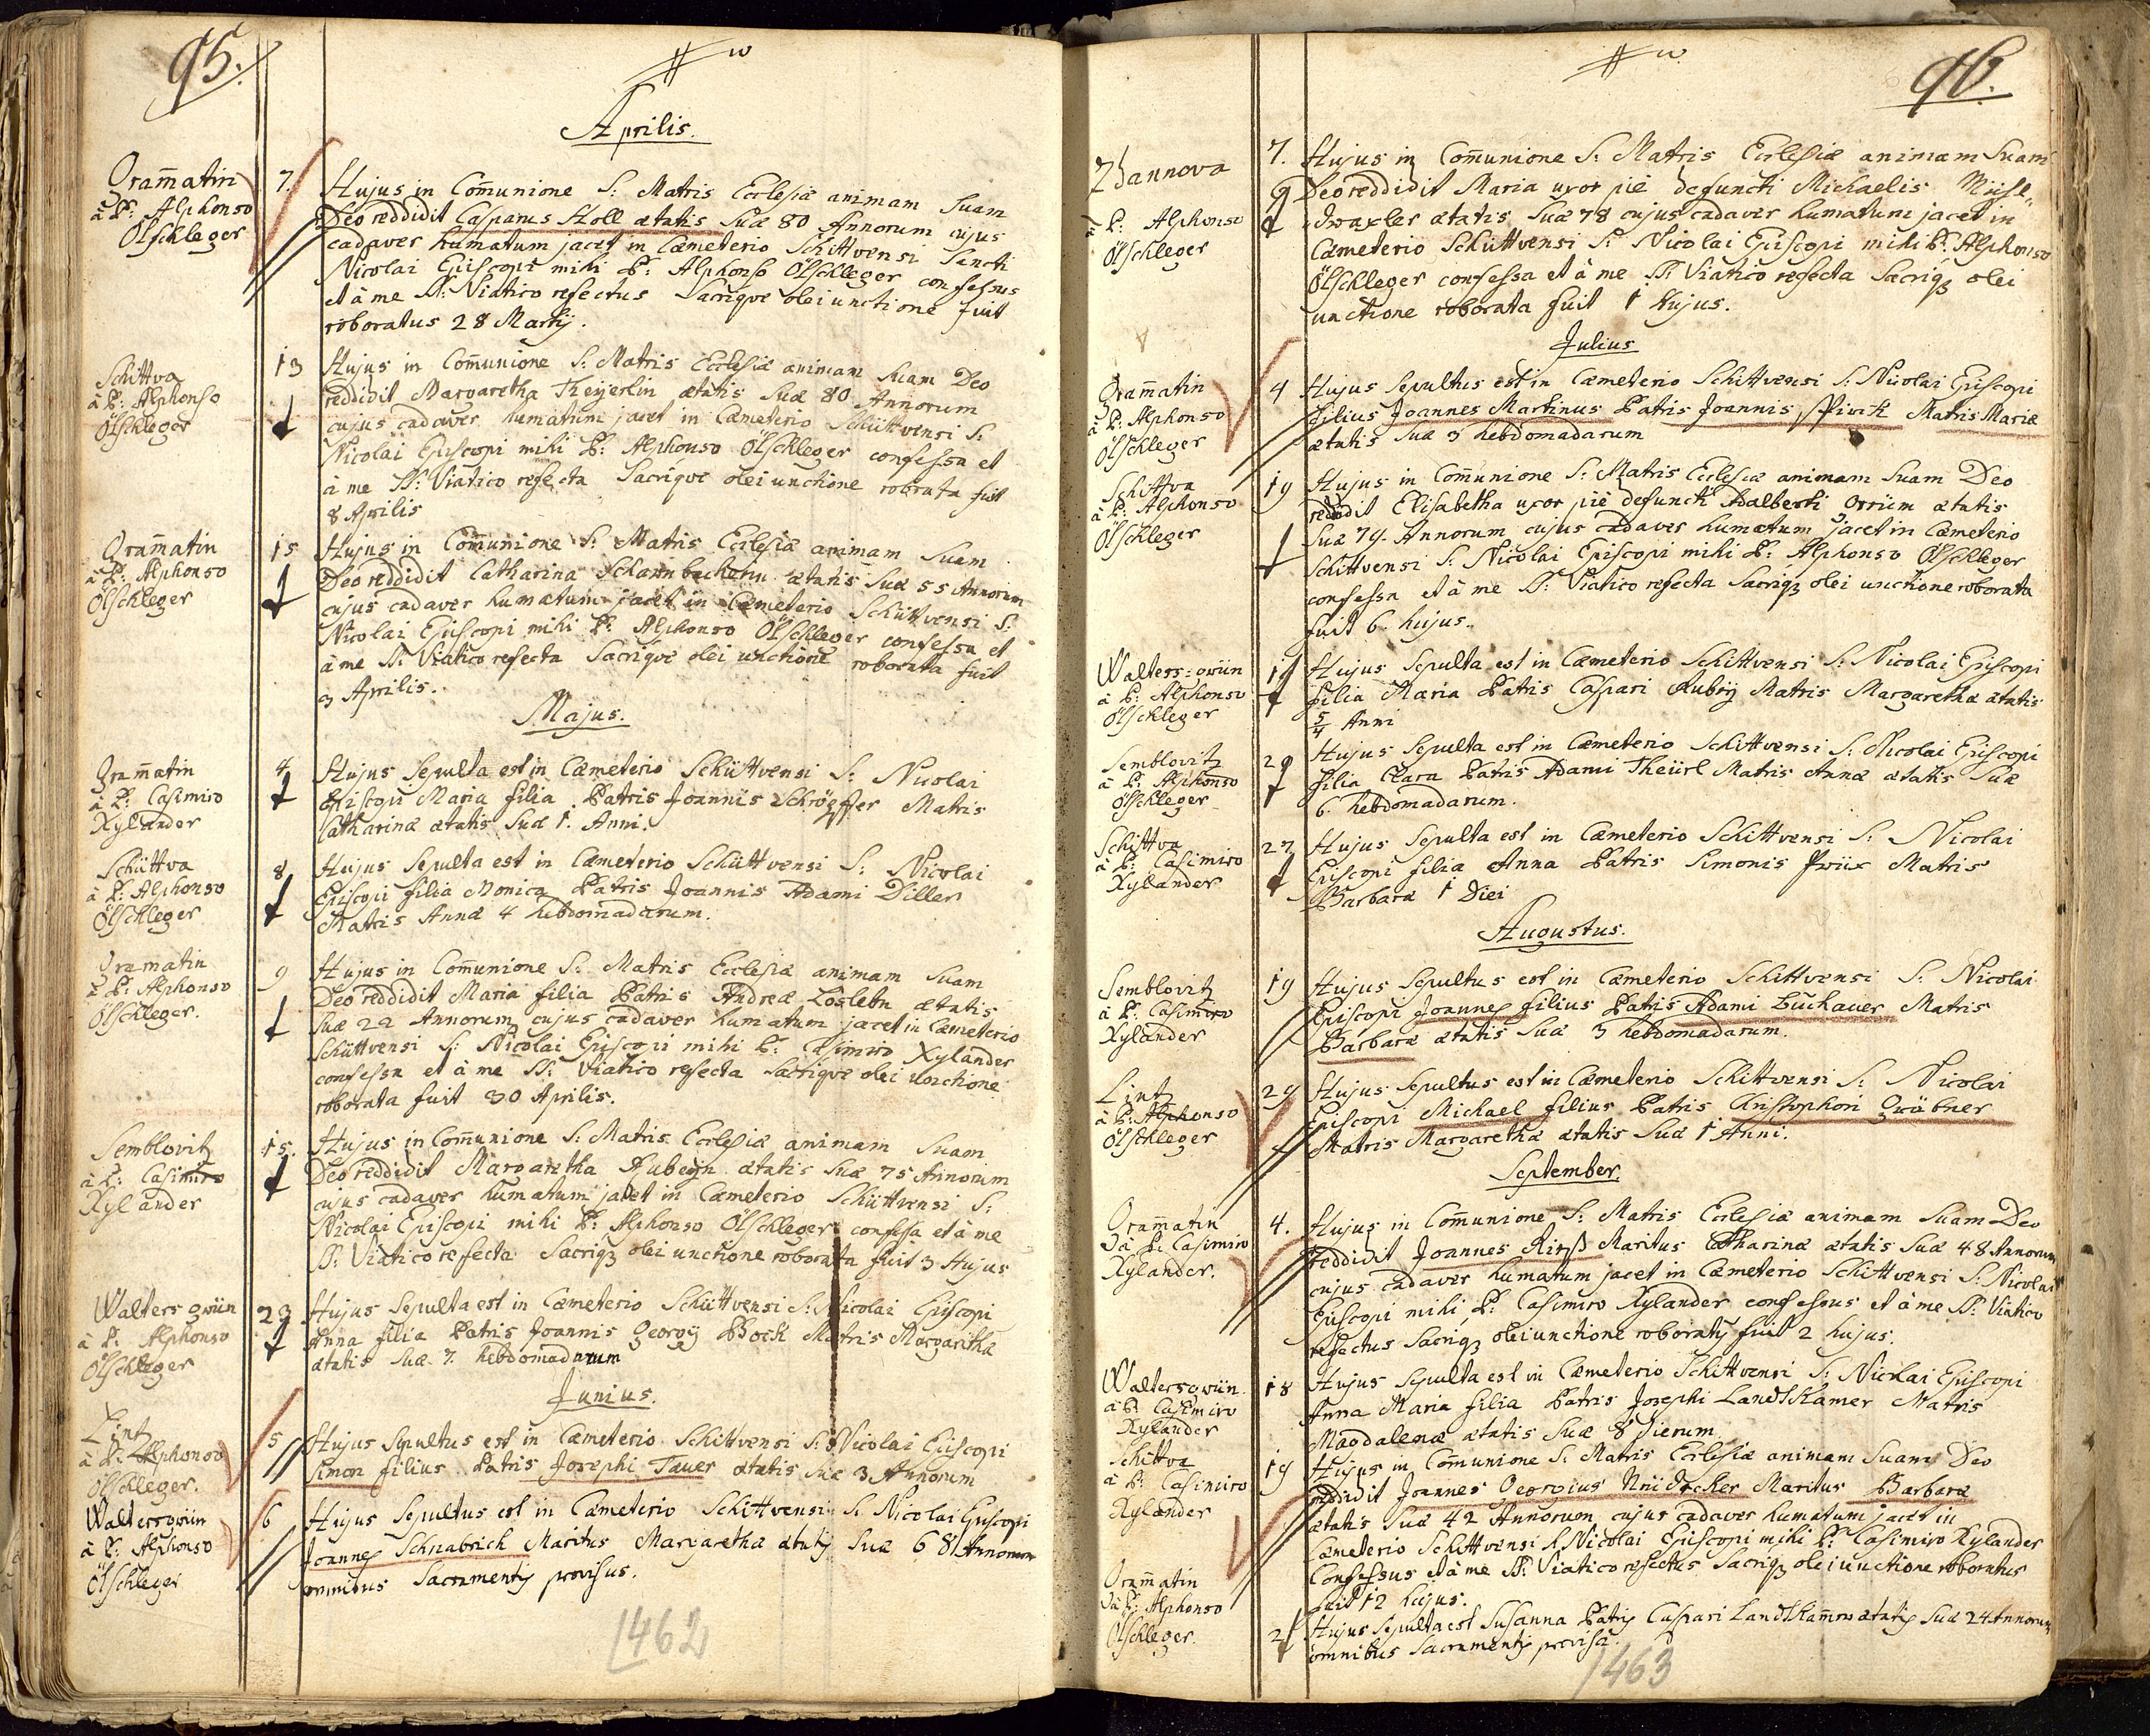 95.
Aprilis.
Gram̅atin
à P: Alphonso
Ölschleger
7. Hujus in Com̅unione S: Matris Ecclesiæ animam Suam
Deo reddidit Casparus Holl ætatis Suæ 80 Annorum cujus
cadaver humatum jacet in Cæmeterio Schittvensi Sancti
Nicolai Episcopi mihi P: Alphonso Ölschleger confessus
et à me SS: Viatico refectus Sacrique olei unctione fuit
roboratus 28 Martij.
Schittva
à P: Alphonso
Ölschleger
13 Hujus in Com̅unione S: Matris Ecclesiæ animam Suam Deo
reddidit Margaretha Theyerlin ætatis Suæ 80 Annorum
cujus cadaver humatum jacet in Cæmeterio Schüttvensi S:
Nicolai Episcopi mihi P: Alphonso Ölschleger confessa et
à me SS: Viatico refecta Sacrique olei unctione robrata fuit
8 Aprilis
Gram̅atin
à P: Alphonso
Ölschleger
15 Hujus in Com̅unione S: Matris Ecclesiæ animam Suam
Deo reddidit Catharina ætatis Suæ 55 Annorum
cujus cadaver humatum jacet in Cæmeterio Schüttvensi S:
Nicolai Episcopi mihi P: Alphonso Ölschleger confessa et
à me SS: Viatico refecta Sacrique olei unctione roborata fuit
3 Aprilis.
Majus.
Gram̅atin
à P: Casimiro
Xylander
4 Hujus Sepulta est in Cæmeterio Schüttvensi S: Nicolai
Episcopi Maria filia Patris Joannis Matris
Catharinæ ætatis Suæ 1. Anni.
Schüttva
à P: Alphonso
Ölschleger
8 Hujus Sepulta est in Cæmeterio Schüttvensi S: Nicolai
Episcopi filia Monica Patris Joannis Adami Diller
Matris Annæ 4 hebdomadarum.
Gramatin
à P: Alphonso
Ölschleger.
9 Hujus in Com̅unione S: Matris Ecclesiæ animam Suam
Deo reddidit Maria filia Patris Andreæ ætatis
Suæ 22 Annorum cujus cadaver humatum jacet in Cæmeterio
Schüttvensi S: Nicolai Episcopi mihi P: Casimiro Xylander
confessa et à me SS: Viatico refecta Sacrique olei unctione
roborata fuit 30 Aprilis.
Semblovitz
à P: Casimiro
Xylander
15. Hujus in Com̅unione S: Matris Ecclesiæ animam Suam
Deo reddidit Margaretha Rubeyn ætatis Suæ 75 Annorum
cujus cadaver humatum jacet in Cæmeterio Schüttvensi S:
Nicolai Episcopi mihi P: Alphonso Ölschleger confessa et à me
SS: Viatico refecta Sacriqꝫ olei unctione roborata fuit 3 Hujus
Walters grün
à P: Alphonso
Ölschleger
23 Hujus Sepulta est in Cæmeterio Schüttvensi S: Nicolai Episcopi
Anna filia Patris Joannis Georgy Bock Matris Margarithæ
ætatis Suæ 7. hebdomadarum
Junius.
Lintz
à P: Alphonso
Ölschleger.
5 Hujus Sepultus est in Cæmeterio Schittvensi S: Nicolai Episcopi
Simon filius Patris Josephi Tauer ætatis Suæ 3 Annorum
Waltersgrün
à P: Alphonso
Ölschleger
6 Hujus Sepultus est in Cæmeterio Schittvensi S: Nicolai Episcopi
Joannes Schnabrich Maritus Margarethæ ætatis Suæ 68 Annorum
omnibus Sacramentis provisus.
1462
96.
Zdannova
à P: Alphonso
Ölschleger
7. Hujus in Com̅unione S: Matris Ecclesiæ animam Suam
9 Deo reddidit Maria uxor piè defuncti Michaelis
ætatis Suæ 78 cujus cadaver humatum jacet in
Cæmeterio Schüttvensi S: Nicolai Episcopi mihi P: Alphonso
Ölschleger confessa et à me SS: Viatico refecta Sacriqꝫ olei
unctione roborata fuit 1 hujus.
Julius
Gram̅atin
à P: Alphonso
Ölschleger
4 Hujus Sepultus est in Cæmeterio Schittvensi S: Nicolai Episcopi
filius Joannes Martinus Patris Joannis Matris Mariæ
ætatis Suæ 3 hebdomadarum
Schittva
à P: Alphonso
Ölschleger
19 Hujus in Com̅unione S: Matris Ecclesiæ animam Suam Deo
reddidit Elisabetha uxor piè defuncti Adalberti Grüm ætatis
Suæ 79. Annorum cujus cadaver humatum jacet in Cæmeterio
Schittvensi S: Nicolai Episcopi mihi P: Alphonso Ölschleger
confessa et à me SS: Viatico refecta Sacriqꝫ olei unctione roborata
fuit 6. hujus.
Walters=grün
à P: Alphonso
Ölschleger
19 Hujus Sepulta est in Cæmeterio Schittvensi S: Nicolai Episcopi
filia Maria Patris Caspari Rubey Matris Margarethæ ætatis
5/4 Anni
Semblovitz
à P: Alphonso
Ölschleger
29 Hujus Sepulta est in Cæmeterio Schittvensi S: Nicolai Episcopi
filia Clara Patris Adami Theürl Matris Annæ ætatis Suæ
6. hebdomadarum.
Schittva
à P: Casimiro
Xylander
27 Hujus Sepulta est in Cæmeterio Schittvensi S: Nicolai
Episcopi filia Anna Patris Simonis Matris
Barbaræ 1 Diei
Augustus.
Semblovitz
à P: Casimiro
Xylander
19 Hujus Sepultus est in Cæmeterio Schittvensi S: Nicolai
Episcopi Joannes filius Patris Adami Buchauer Matris
Barbaræ ætatis Suæ 3 hebdomadarum.
Lintz
à P: Alphonso
Ölschleger
29 Hujus Sepultus est in Cæmeterio Schittvensi S: Nicolai
Episcopi Michael filius Patris Christophori Gräbner
Matris Margarethæ ætatis Suæ 1 Anni.
September.
Gram̅atin
à P: Casimiro
Xylander.
4. Hujus in Com̅unione S: Matris Ecclesiæ animam Suam Deo
reddidit Joannes Maritus Catharinæ ætatis Suæ 48 Annorum
cujus cadaver humatum jacet in Cæmeterio Schittvensi S: Nicolai
Episcopi mihi P: Casimiro Xylander confessus et à me SS: Viatico
refectus Sacriqꝫ olei unctione roboratus fuit 2 hujus.
Waltersgrün
à P: Casimiro
Xylander
18 Hujus Sepulta est in Cæmeterio Schittvensi S: Nicolai Episcopi
Anna Maria filia Patris Josephi Landtkamer Matris
Magdalenæ ætatis Suæ 8 dierum.
Schittva
à P: Casimiro
Xylander
19 Hujus in Com̅unione S: Matris Ecclesiæ animam Suam Deo
reddidit Joannes Georgius Maritus Barbaræ
ætatis Suæ 42 Annorum cujus cadaver humatum jacet in
Cæmeterio Schittvensi S Nicolai Episcopi mihi P: Casimiro Xylander
Confessus et à me SS: Viatico refectus Sacriqꝫ olei unctione roboratus
fuit 12 hujus.
Gram̅atin
à P: Alphonso
Ölschleger.
Hujus Sepulta est Susanna Patris Caspari Landtkam̅er ætatis Suæ 24 Annorum
omnibus Sacramentis provisa.
1463